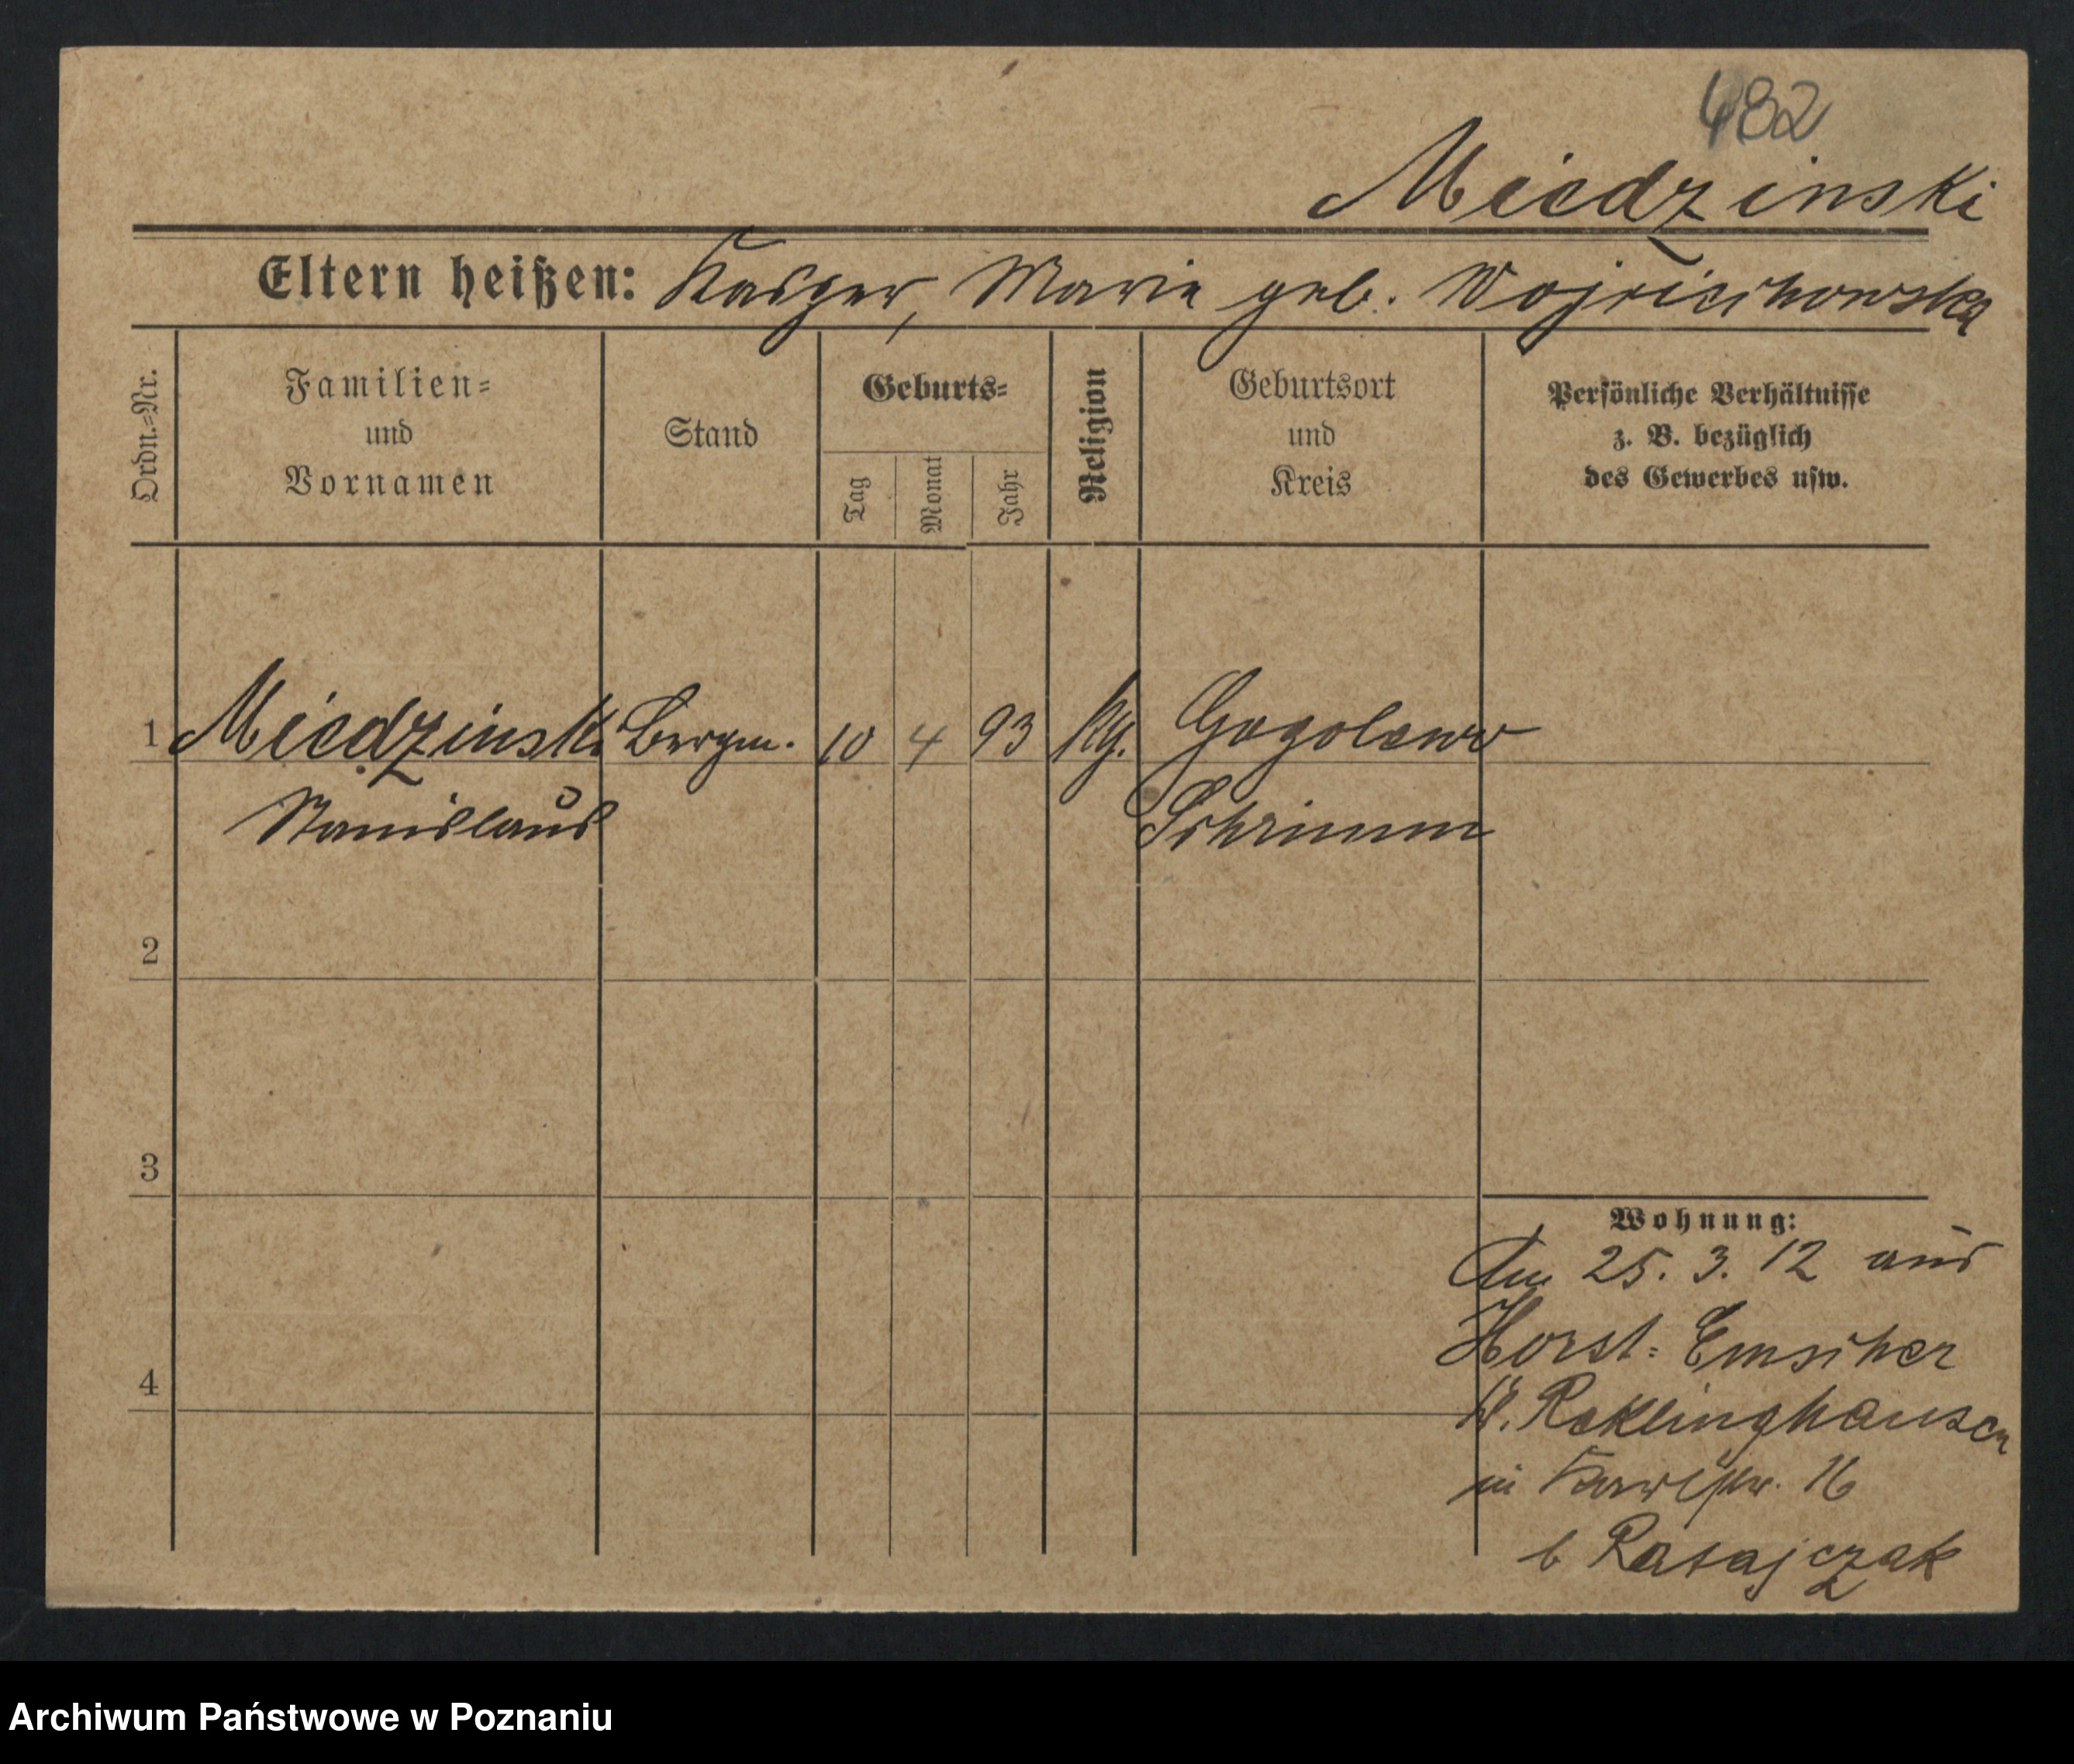 482
Miedzinski
Eltern heißen: Kasper, Marie geb. Wojciechowska
Ordn.=Nr.
Familien=
und
Vornamen
Stand
Geburts=
Tag
Monat
Jahr
Religion
Geburtsort
und
Kreis
Persönliche Verhältnisse
z. B. bezüglich
des Gewerbes usw.
1 Miedzinski Bergm. 10 4 93 Kg. Gogolewo
Stanislaus Schrimm
2
3
4
Wohnung:
Am 25. 3. 12 aus
Horst=Emscher
K. Reklinghausen
in 16
b Ratajczak
Archiwum Państwowe w Poznaniu